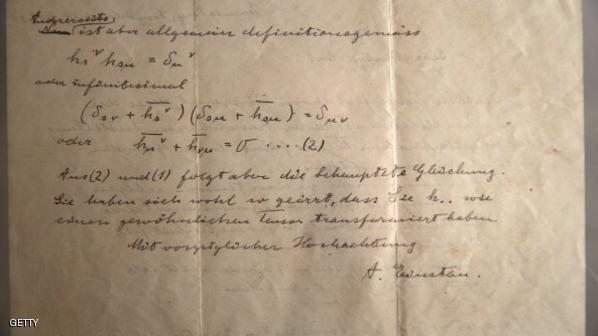 Andrerseits
ist aber allgemein definitionsgemäss
hₛᵛ hₛμ = δμᵛ
oder infinitesimal
(δₛᵥ + h̅ₛᵛ) (δₛμ + h̅ₛμ) = δμᵥ
oder h̅μᵛ + h̅ᵥμ = 0 ....(2)
Aus (2) und (1) folgt aber die behauptete Gleichung.
Sie haben sich wohl so geirrt, dass Sie h.. wie
einen gewöhnlichen Tensor transformiert haben.
Mit vorzüglicher Hochachtung
A. Einstein.
GETTY